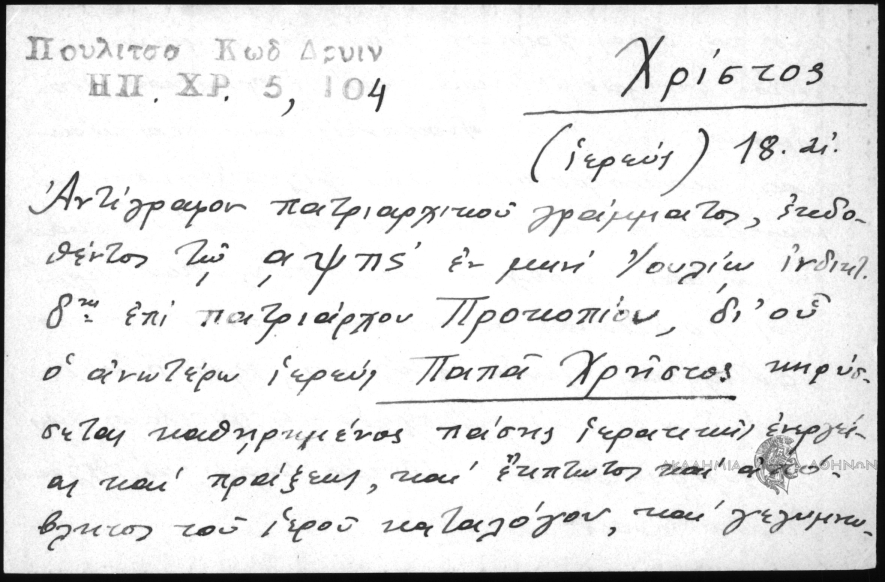 Πουλιτσα Κωδ Δρυιν
ΗΠ. ΧΡ. 5, 104
Χρίστος
(ἱερεύς) 18. αἰ.
Ἀντίγραφον πατριαρχικοῦ γράμματος, ἐκδο-
θέντος τῷ ͵αψπϛ' ἐν μηνί Ἰουλίῳ ἰνδικτ.
δῃ ἐπί πατριάρχου Προκοπίου, δι' οὗ
ὁ ἀνωτέρω ἱερεύς Παπᾶ Χρῆστος κηρύσ-
σεται καθῃρημένος πάσης ἱερατικῆς ἐνεργεί-
ας καί πράξεως, καί ἔκπτωτος καί ἀπό-
βλητος τοῦ ἱεροῦ καταλόγου, καί γεγυμνω-
ΑΚΑΔΗΜΙΑ ΑΘΗΝΩΝ